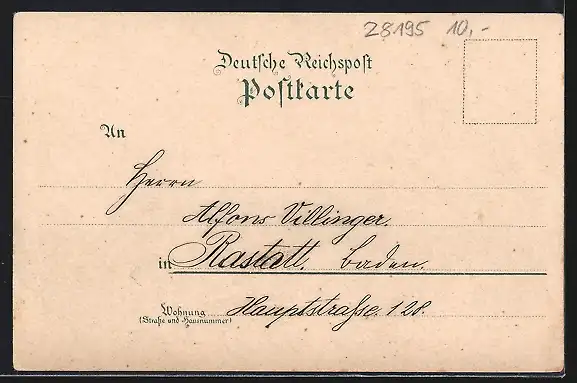 28195 10,-
Deutsche Reichspost
Postkarte
An
Herrn
Alfons Villinger.
in Rastatt. Baden.
Wohnung Hauptstrasse 128.
(Straße und Hausnummer)